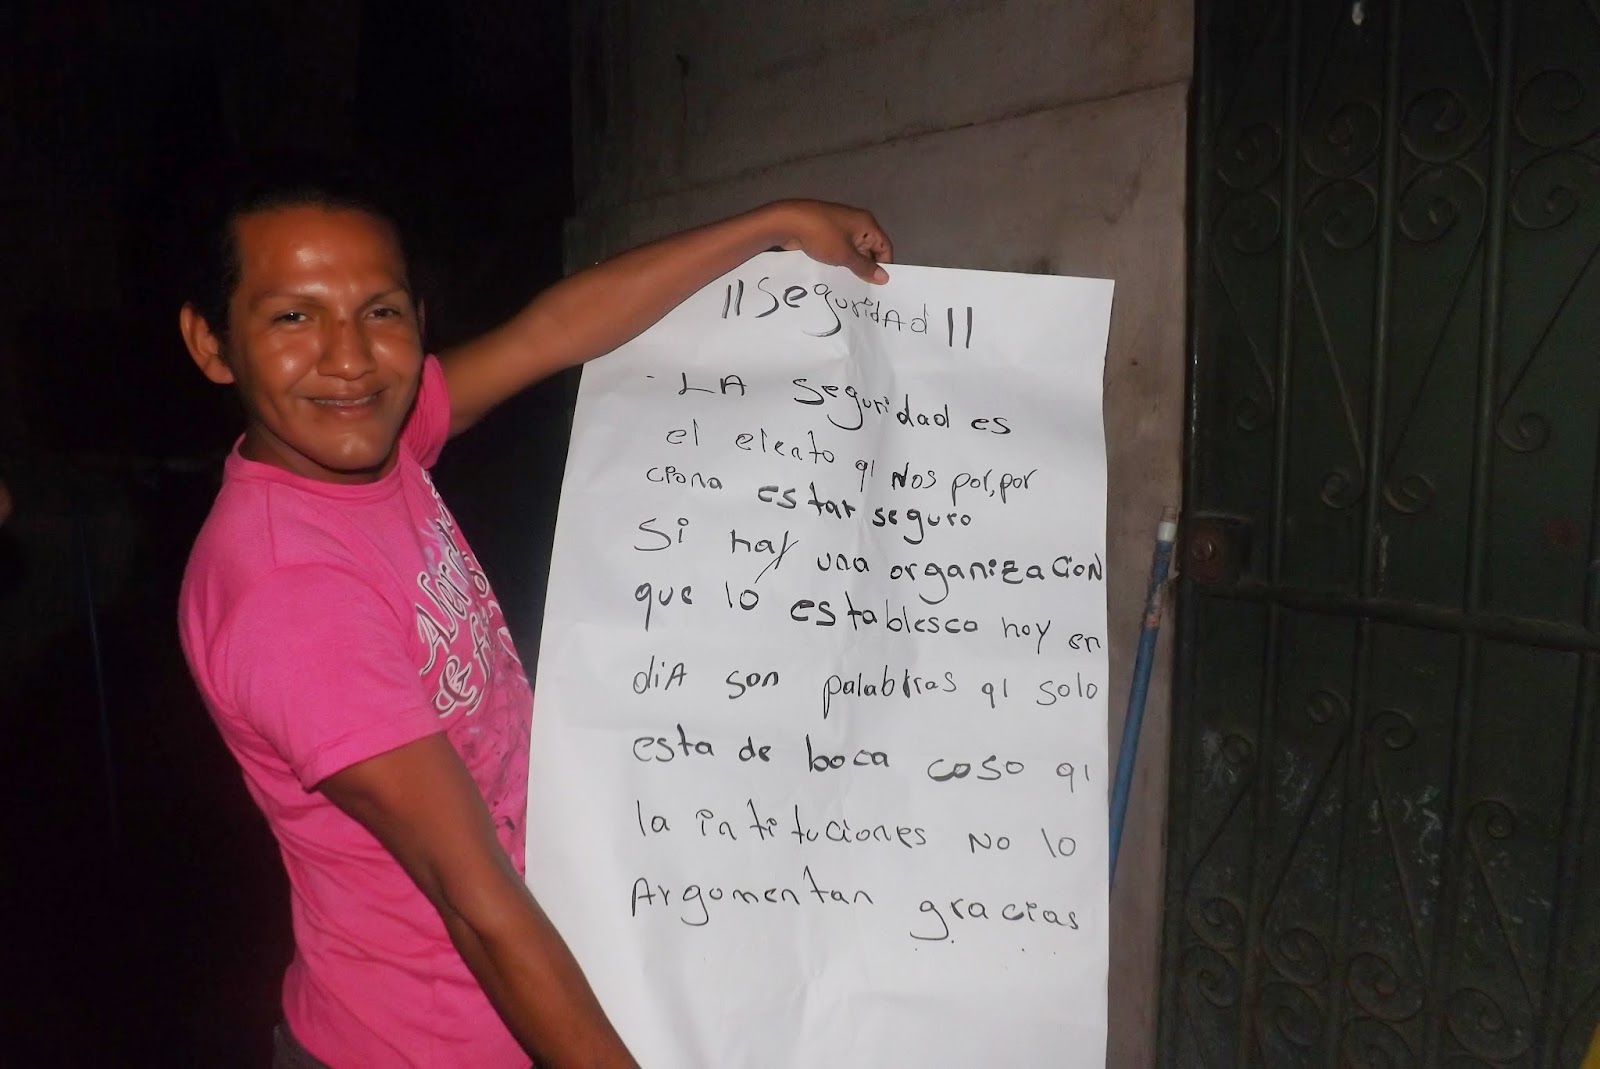 ||SeguridAd||
- LA seguridad es
el eleato qi Nos por,por
cpona estar seguro
Si hay una organizaciON
que lo establesca hoy en
diA son palabras qi solo
esta de boca coso qi
la intituciones No lo
Argomentan gracias